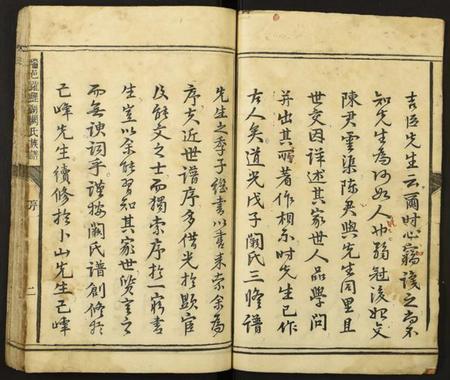 吉臣先生云爾时心竊識之
知先生為何如人也弱冠後始交
陳君雲渠陈君與先生同里且
世交因详述其家世人品學問
并出其所著作相示时先生已作
古人矣道光戊子阙氏三修譜
先生之季子继書以書来索余為
序夫近世谱序多借光於顯宦
及能文之士而獨索序於一窮書
生豈以余能習知其家世 言之
而無諛词乎謹按阙氏譜創修於
己峰先生續修於卜山先生己峰
瑞邑 闕氏族譜
序
二